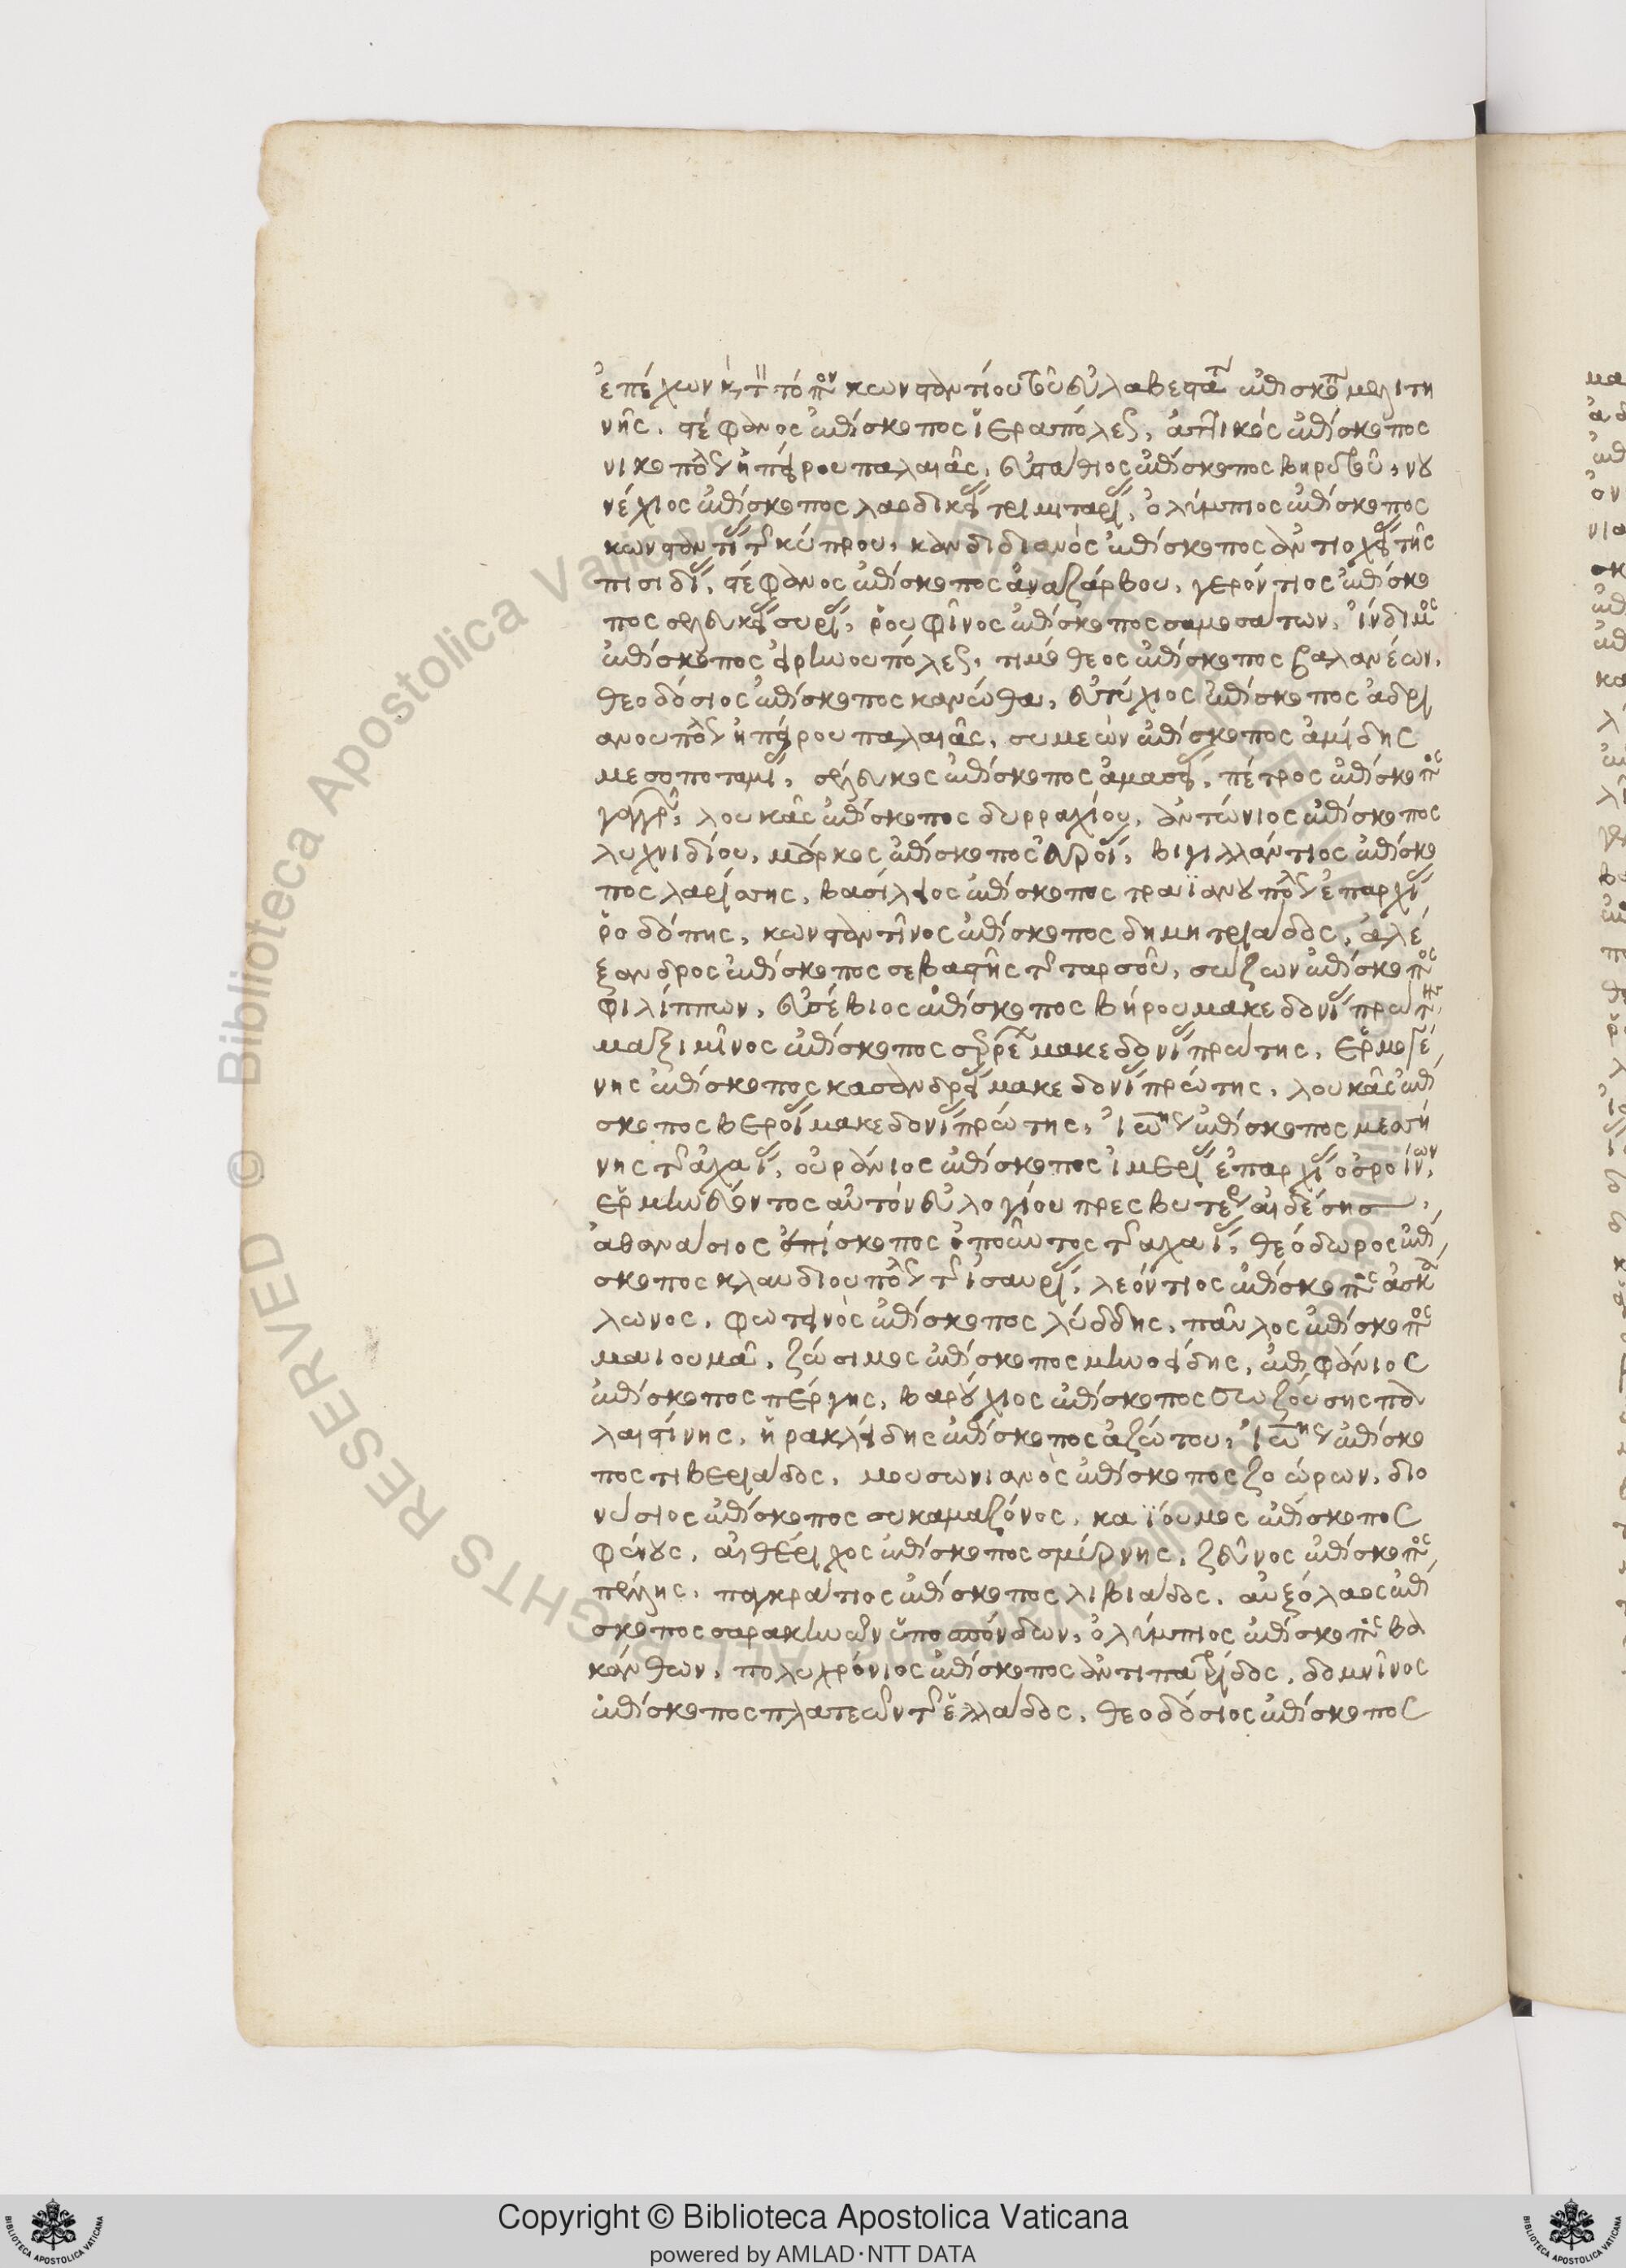 ἐπέχων κ, τ τόπον κωνσταντίου τοῦ εὐλαβεστατ ἐπισκοπ μελιτη
νῆς. στέφανος ἐπίσκοπος ἱεραπόλεως, ἀττικός ἐπίσκοπος
νικοπόλεως ἠπείρου παλαιᾶς, εὐστάθιος ἐπίσκοπος βηρυτοῦ, νου
νέχιος ἐπίσκοπος λαοδικείας τριμιταρίας, ὀλύμπιος ἐπίσκοπος
κωνσταντίας τῆς κύπρου, κανδιδιανὸς ἐπίσκοπος ἀντιοχείας τῆς
πισιδίας, στέφανος ἐπίσκοπος ἀναζάρβου, γερόντιος ἐπίσκο
πος σελευκείας συρίας, ῥουφῖνος ἐπίσκοπος σαμοσάτων, ἰνδιμος
ἐπίσκοπος εἰρηνουπόλεως, τιμόθεος ἐπίσκοπος βαλανέων,
θεοδόσιος ἐπίσκοπος κανώθα, εὐτύχιος ἐπίσκοπος ἀδρι
ανουπόλεως ἠπείρου παλαιᾶς, συμεὼν ἐπίσκοπος ἀμίδης
μεσοποταμίας, σέλευκος ἐπίσκοπος ἀμασείας, πέτρος ἐπίσκοπος
γαγγρῶν, λουκᾶς ἐπίσκοπος δυρραχίου, ἀντώνιος ἐπίσκοπος
λυχνιδίου, μάρκος ἐπίσκοπος εὐροίας, βιγιλλάντιος ἐπίσκο
πος λαρίσσης, βασίλειος ἐπίσκοπος τραϊανουπόλεως ἐπαρχίας
ῥοδόπης, κωνσταντῖνος ἐπίσκοπος δημητριάδος, ἀλέ
ξανδρος ἐπίσκοπος σεβαστῆς τῆς ταρσοῦ, σώζων ἐπίσκοπος
φιλίππων, εὐσέβιος ἐπίσκοπος βήρου μακεδονίας πρώτης
μαξιμῖνος ἐπίσκοπος σερρε μακεδονίας πρώτης, ἑρμογέ
νης ἐπίσκοπος κασανδρείας μακεδονίας πρώτης, λουκᾶς ἐπί
σκοπος βεροίας μακεδονίας πρώτης, ἰωάννης ἐπίσκοπος μεσσή
νης τῆς ἀχαΐας, οὐράνιος ἐπίσκοπος ἰμερίας ἐπαρχίας ὀσροίνων,
ἑρμηνεύοντος αὐτόν εὐλογίου πρεσβυτέρου αἰδέσης,
ἀθανάσιος ἐπίσκοπος ὀποῦντος τῆς ἀχαΐας, θεόδωρος ἐπί
σκοπος κλαυδιουπόλεως τῆς ἰσαυρίας, λεόντιος ἐπίσκοπος ἀσκα
λωνος, φωτεινὸς ἐπίσκοπος λύδδης, παῦλος ἐπίσκοπος
μαιουμᾶ, ζώσιμος ἐπίσκοπος μηνοείδης, ἐπιφάνιος
ἐπίσκοπος πέργης, βαρούχιος ἐπίσκοπος σωζούσης πα
λαιστίνης, ἡρακλείδης ἐπίσκοπος ἀζώτου, ἰωάννης ἐπίσκο
πος τιβεριάδος, μουσωνιανὸς ἐπίσκοπος ζοώρων, διο
νύσιος ἐπίσκοπος συκαμαζόνος, καϊούμος ἐπίσκοπος
φένους, αἰθέριχος ἐπίσκοπος σμύρνης, ζεῦνος ἐπίσκοπος
πέλλης, παγκράτιος ἐπίσκοπος λιβιάδος, αὐξόλαος ἐπί
σκοπος σαρακηνῶν ὑποσπόνδων, ὀλύμπιος ἐπίσκοπος βα
κάνθων, πολυχρόνιος ἐπίσκοπος ἀντιπατρίδος, δομνῖνος
ἐπίσκοπος πλατεῶν τῆς ἑλλάδος, θεοδόσιος ἐπίσκοπος
Copyright © Biblioteca Apostolica Vaticana
powered by AMLAD·NTT DATA